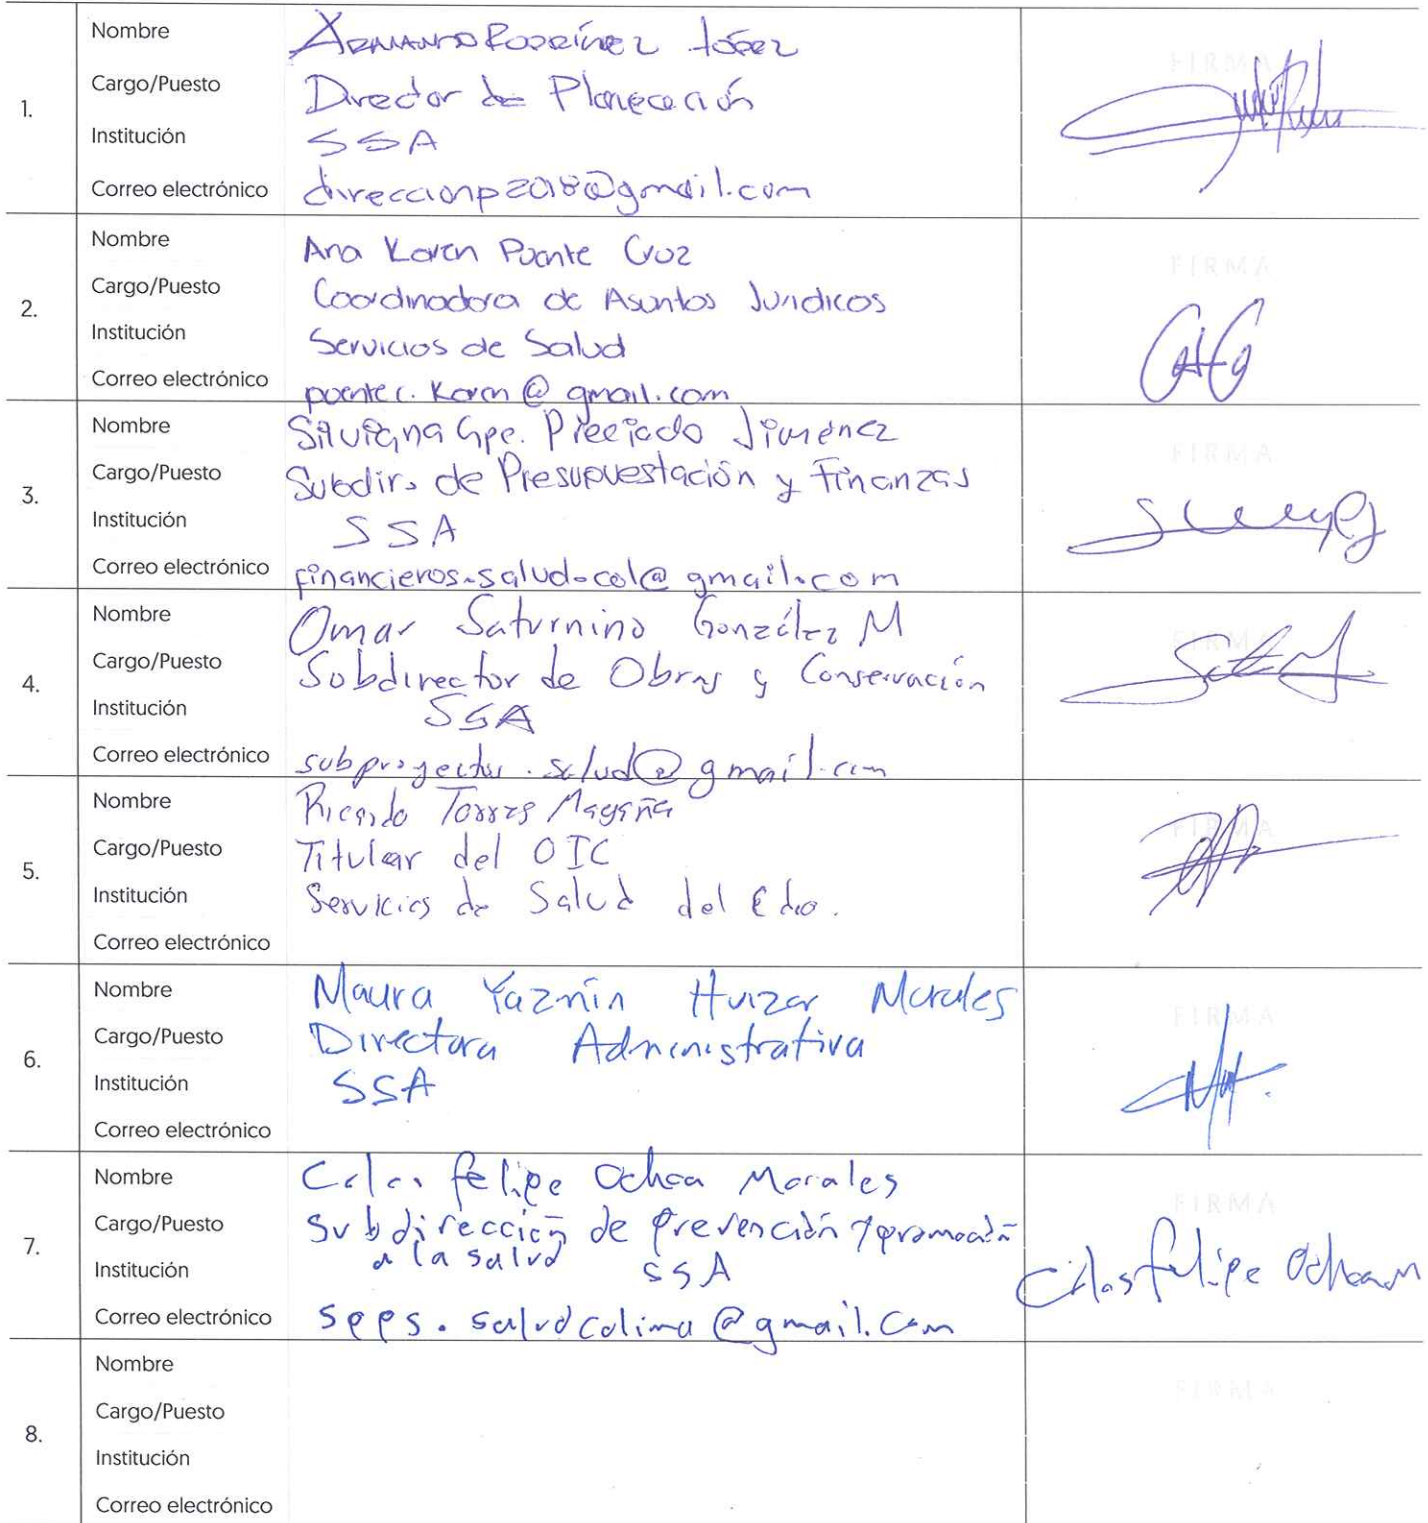 1.
Nombre Armando Rodríguez López
FIRMA
Cargo/Puesto Director de Planeación
Institución SSA
Correo electrónico direccionp2018@gmail.com
2.
Nombre Ana Karen Puente Cruz
FIRMA
Cargo/Puesto Coordinadora de Asuntos Juridicos
Institución Servicios de Salud
Correo electrónico puentec.Karen@gmail.com
3.
Nombre Silviana Gpe. Preciado Jiménez
FIRMA
Cargo/Puesto Subdir. de Presupuestación y Finanzas
Institución SSA
Correo electrónico financieros.salud.col@gmail.com
4.
Nombre Omar Saturnino González M
FIRMA
Cargo/Puesto Subdirector de Obras y Conservación
Institución SSA
Correo electrónico subproyectos.salud@gmail.com
5.
Nombre Ricardo Torres Magaña
FIRMA
Cargo/Puesto Titular del OIC
Institución Servicios de Salud del Edo.
Correo electrónico
6.
Nombre Maura Yazmín Huizar Morales
FIRMA
Cargo/Puesto Directora Administrativa
Institución SSA
Correo electrónico
7.
Nombre Carlos felipe Ochoa Morales
FIRMA
Cargo/Puesto Subdirección de prevención y promoción
a la salud
Institución SSA
Carlos felipe Ochoa M
Correo electrónico spps.saludcolima@gmail.com
8.
Nombre
FIRMA
Cargo/Puesto
Institución
Correo electrónico